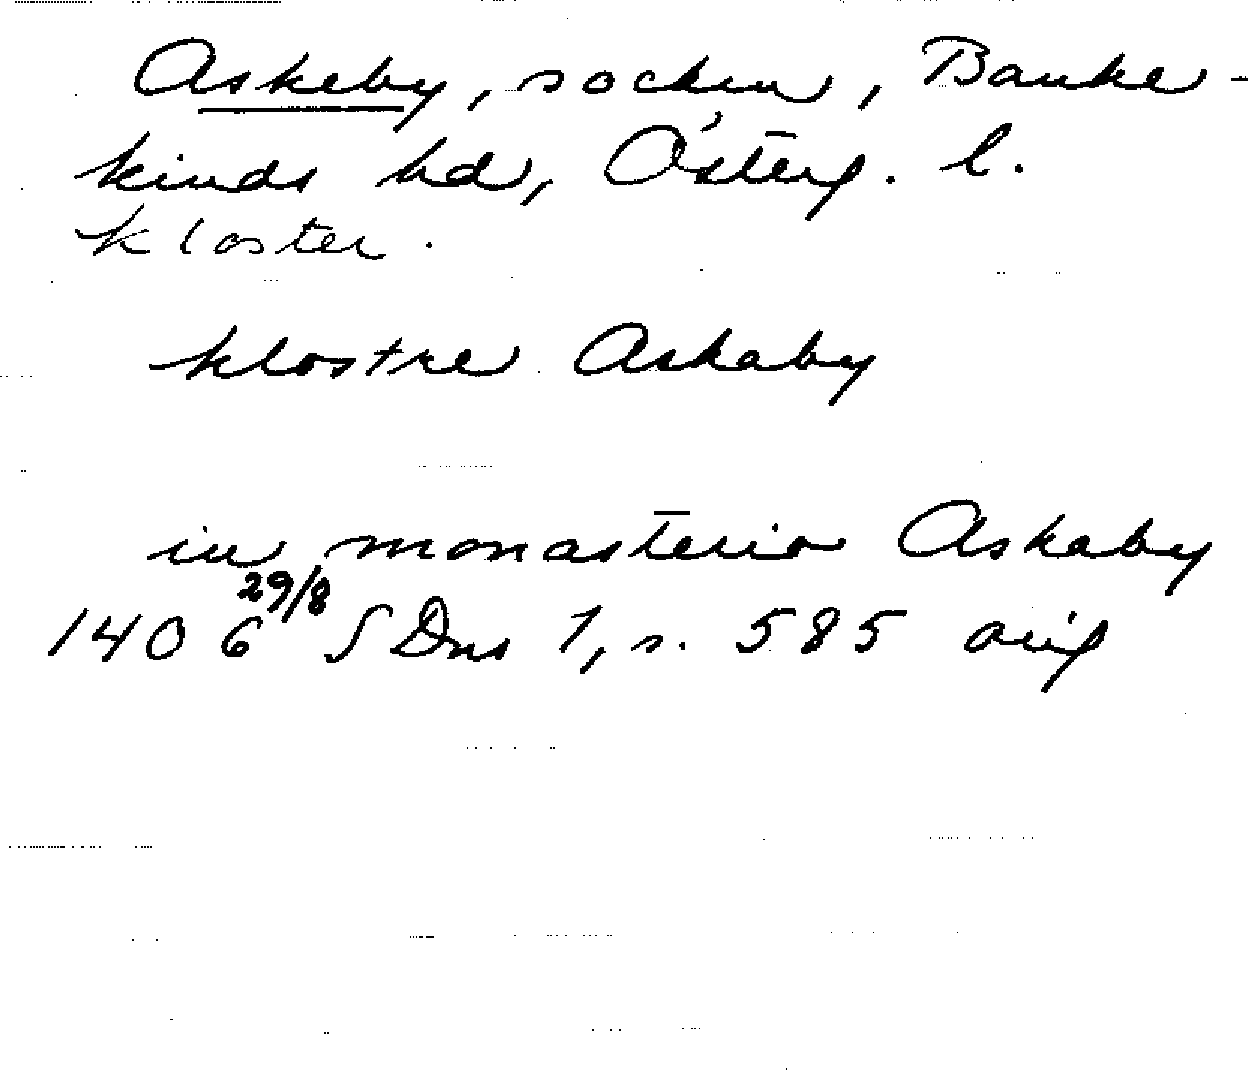 Askeby, socken, Banke-
kinds hd, Österg. l.
kloster.
klostre Askaby
in monasterio Askaby
1406 29/8 SDns 1, s. 585 orig